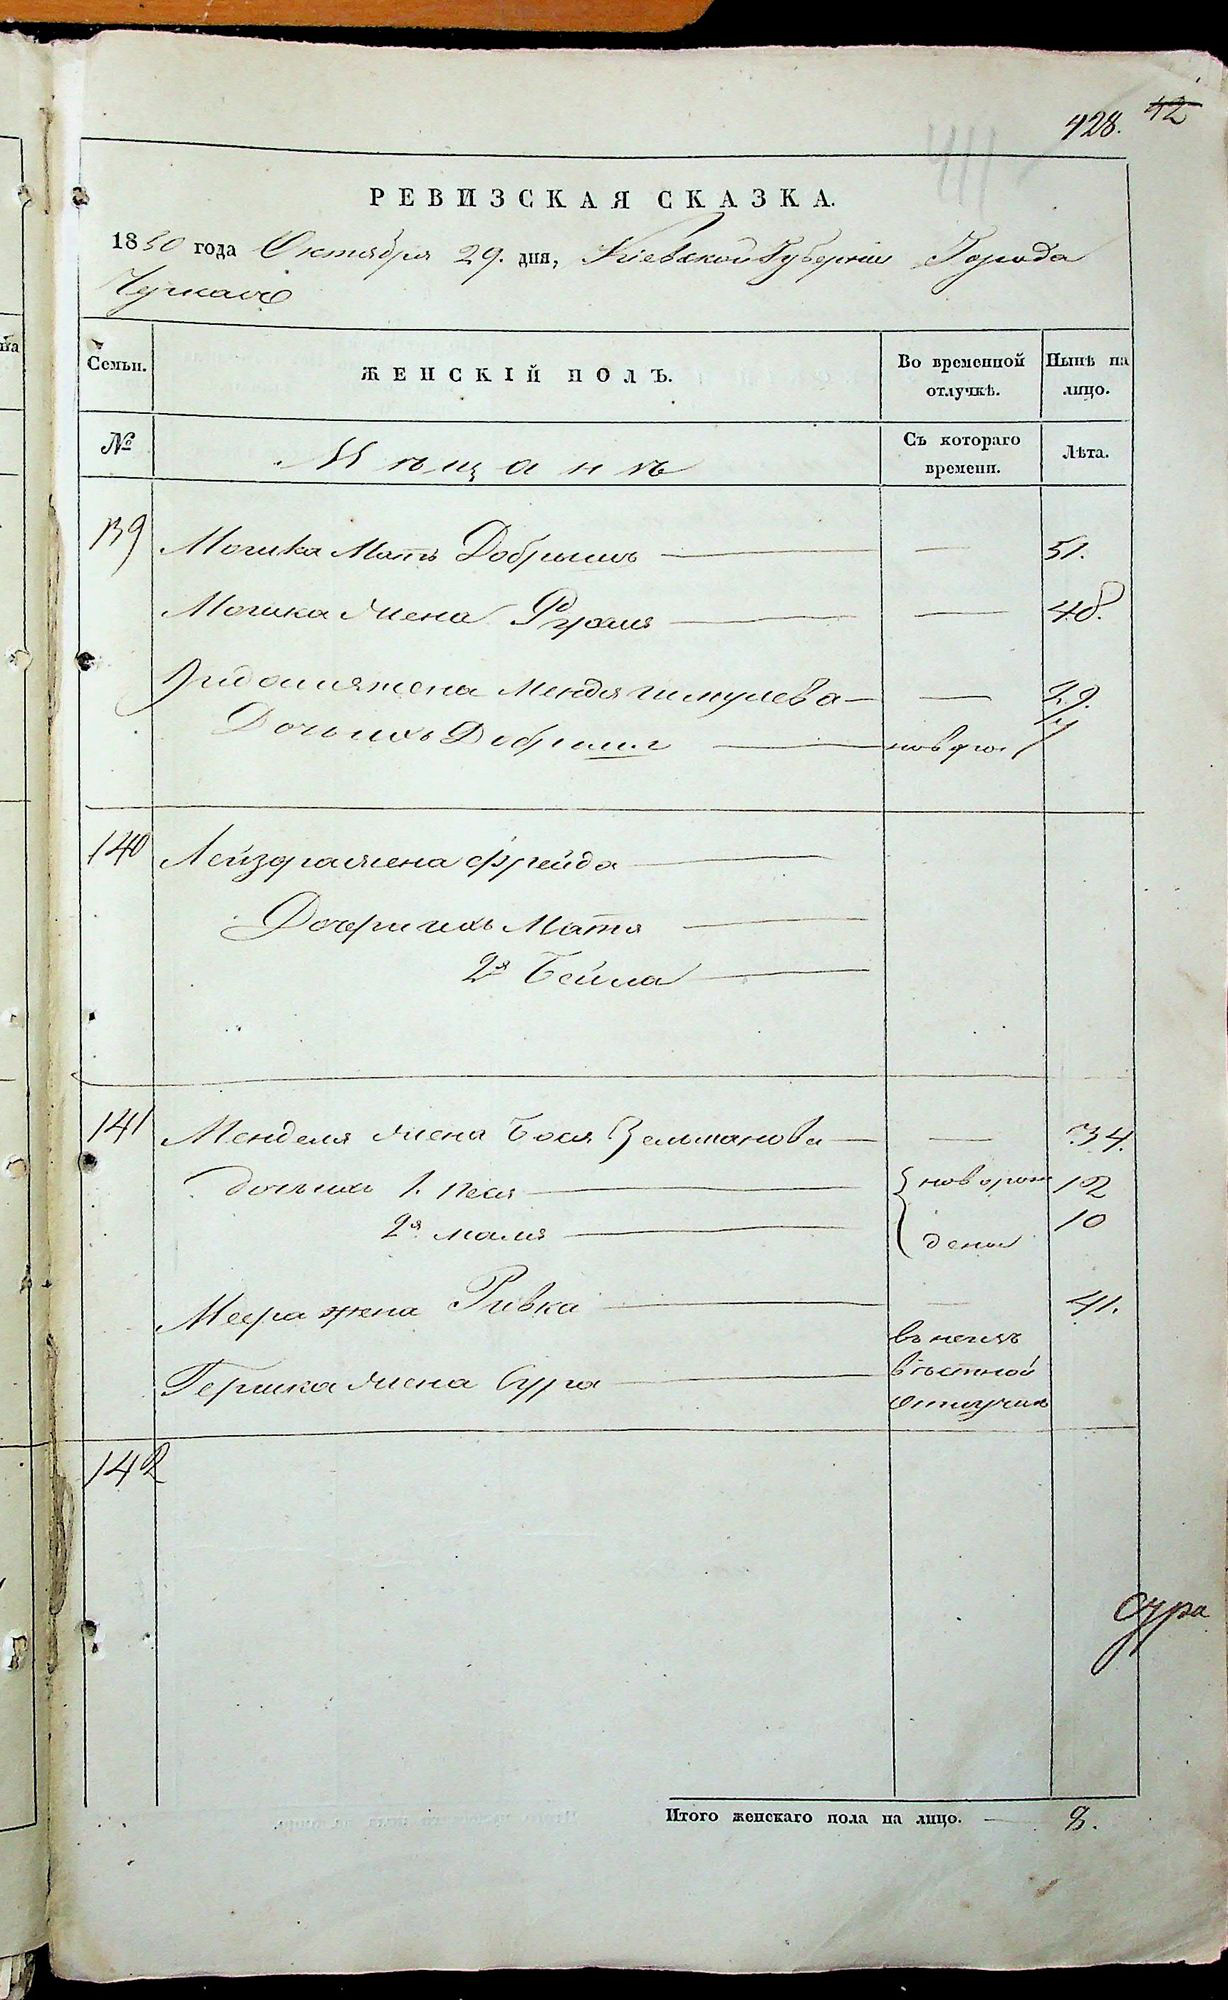 428. 42
411
РЕВИЗСКАЯ СКАЗКА.
1850 года Октября 29. дня, Кіевской Губерніи Города
Черкасъ
Семьи.
ЖЕНСКІЙ ПОЛЪ.
Во временной отлучкѣ.
Нынѣ на лицо.
№
Мѣщанъ
Съ котораго времени.
Лѣта.
139 Мошка Мать Добрышъ — — 51.
Мошка жена Фрума — — 48.
жена Мендя Шмулева — — 29.
Дочь ихъ Добрышъ —
140 Лейзора жена Фрейда —
Дочери ихъ Матя —
2я Бейла —
141 Менделя жена Бося Зельманова — — 34.
дочь ихъ 1. Песя — новорож 12
2я Маля — дена 10
Меера жена Ривка — — 41.
Гершка жена Сура — въ неиз
вѣстной
отлучкѣ
142
Сура
Итого женскаго пола на лицо. — 8.